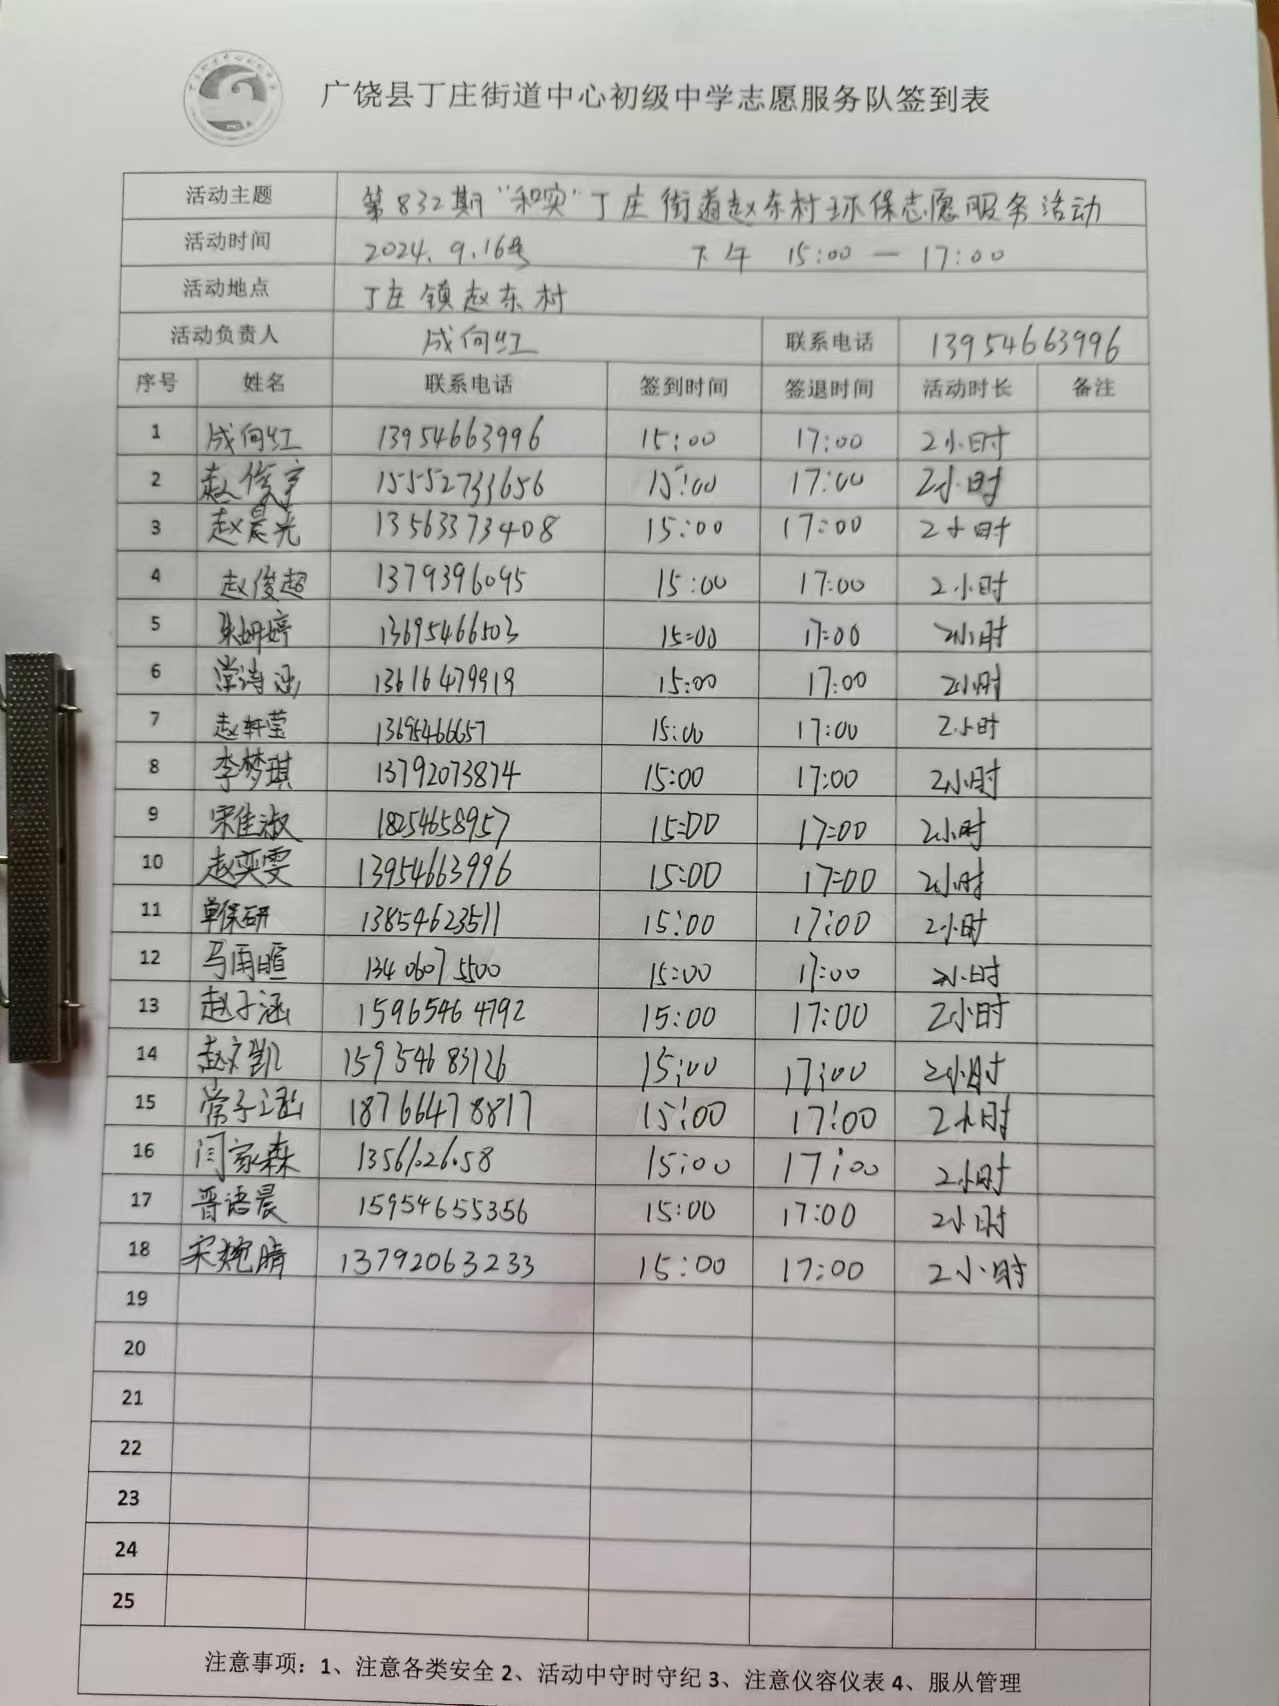 广饶县丁庄街道中心初级中学志愿服务队签到表
活动主题 第832期“和实”丁庄街道赵东村环保志愿服务活动
活动时间 2024.9.16号 下午 15:00—17:00
活动地点 丁庄镇赵东村
活动负责人 成向红 联系电话 13954663996
序号 姓名 联系电话 签到时间 签退时间 活动时长 备注
1 成向红 13954663996 15:00 17:00 2小时
2 赵俊宇 15552733656 15:00 17:00 2小时
3 赵晨光 13563373408 15:00 17:00 2小时
4 赵俊超 1379396095 15:00 17:00 2小时
5 朱妍婷 13695466503 15:00 17:00 2小时
6 常诗涵 13616479919 15:00 17:00 2小时
7 赵轩莹 13695466657 15:00 17:00 2小时
8 李梦琪 13792073874 15:00 17:00 2小时
9 宋佳淑 18254658957 15:00 17:00 2小时
10 赵奕雯 13954663996 15:00 17:00 2小时
11 单保研 13854623511 15:00 17:00 2小时
12 马雨暄 13406075500 15:00 17:00 2小时
13 赵子涵 15965464792 15:00 17:00 2小时
14 赵文凯 15954683126 15:00 17:00 2小时
15 常子涵 18766478817 15:00 17:00 2小时
16 闫家森 15:00 17:00 2小时
17 晋语晨 15954655356 15:00 17:00 2小时
18 宋婉晴 13792063233 15:00 17:00 2小时
19
20
21
22
23
24
25
注意事项：1、注意各类安全 2、活动中守时守纪 3、注意仪容仪表 4、服从管理